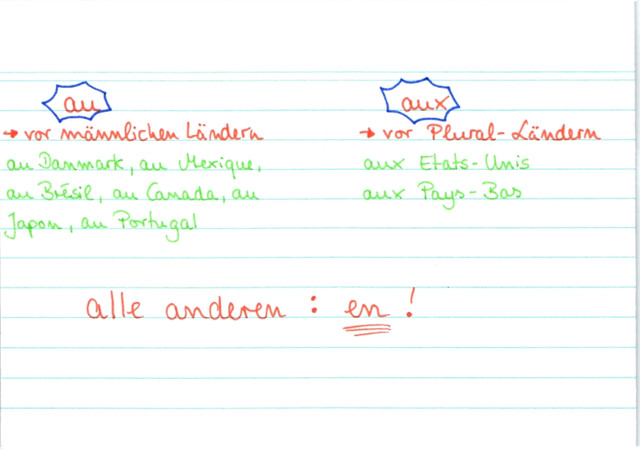 au
→ vor männlichen Ländern
au Danmark, au Mexique,
au Brésil, au Canada, au
Japon, au Portugal
aux
→ vor Plural-Ländern
aux Etats-Unis
aux Pays-Bas
alle anderen : en !